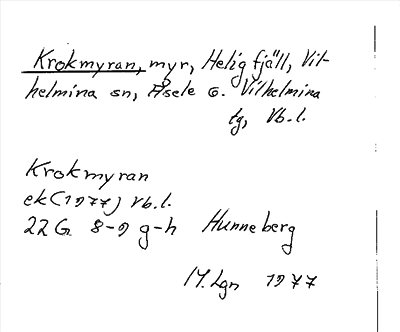 Krokmyran, myr, Heligfjäll, Vil-
helmina sn, Åsele o. Vilhelmina
tg, Vb.l.
Krokmyran
ek (1977) Vb.l.
22 G 8-9 g-h Hunneberg
M. Lgn 1977